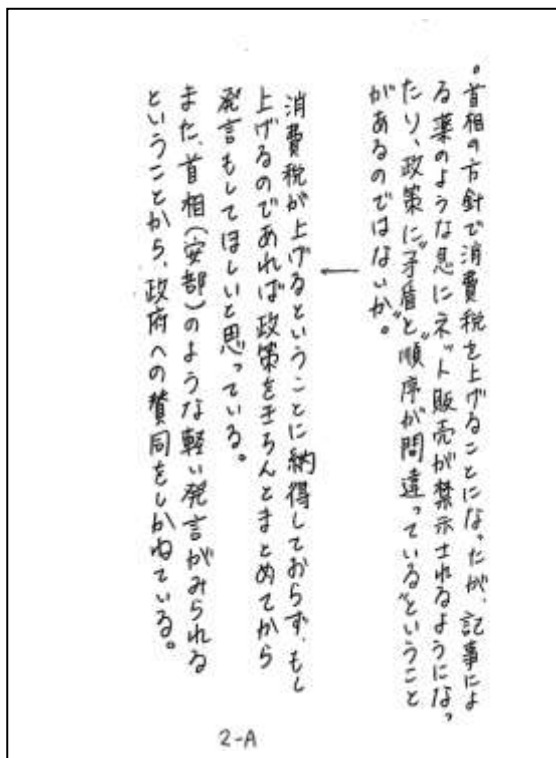 。首相の方針で消費税を上げることになったが、記事によ
る薬のような急にネット販売が禁示されるようになっ
たり、政策に"矛盾"と"順序が間違っている"ということ
があるのではないか。
消費税が上げるということに納得しておらず、もし
上げるのであれば政策をきちんとまとめてから
発言もしてほしいと思っている。
また、首相(安部)のような軽い発言がみられる
ということから、政府への賛同をしかねている。
2-A